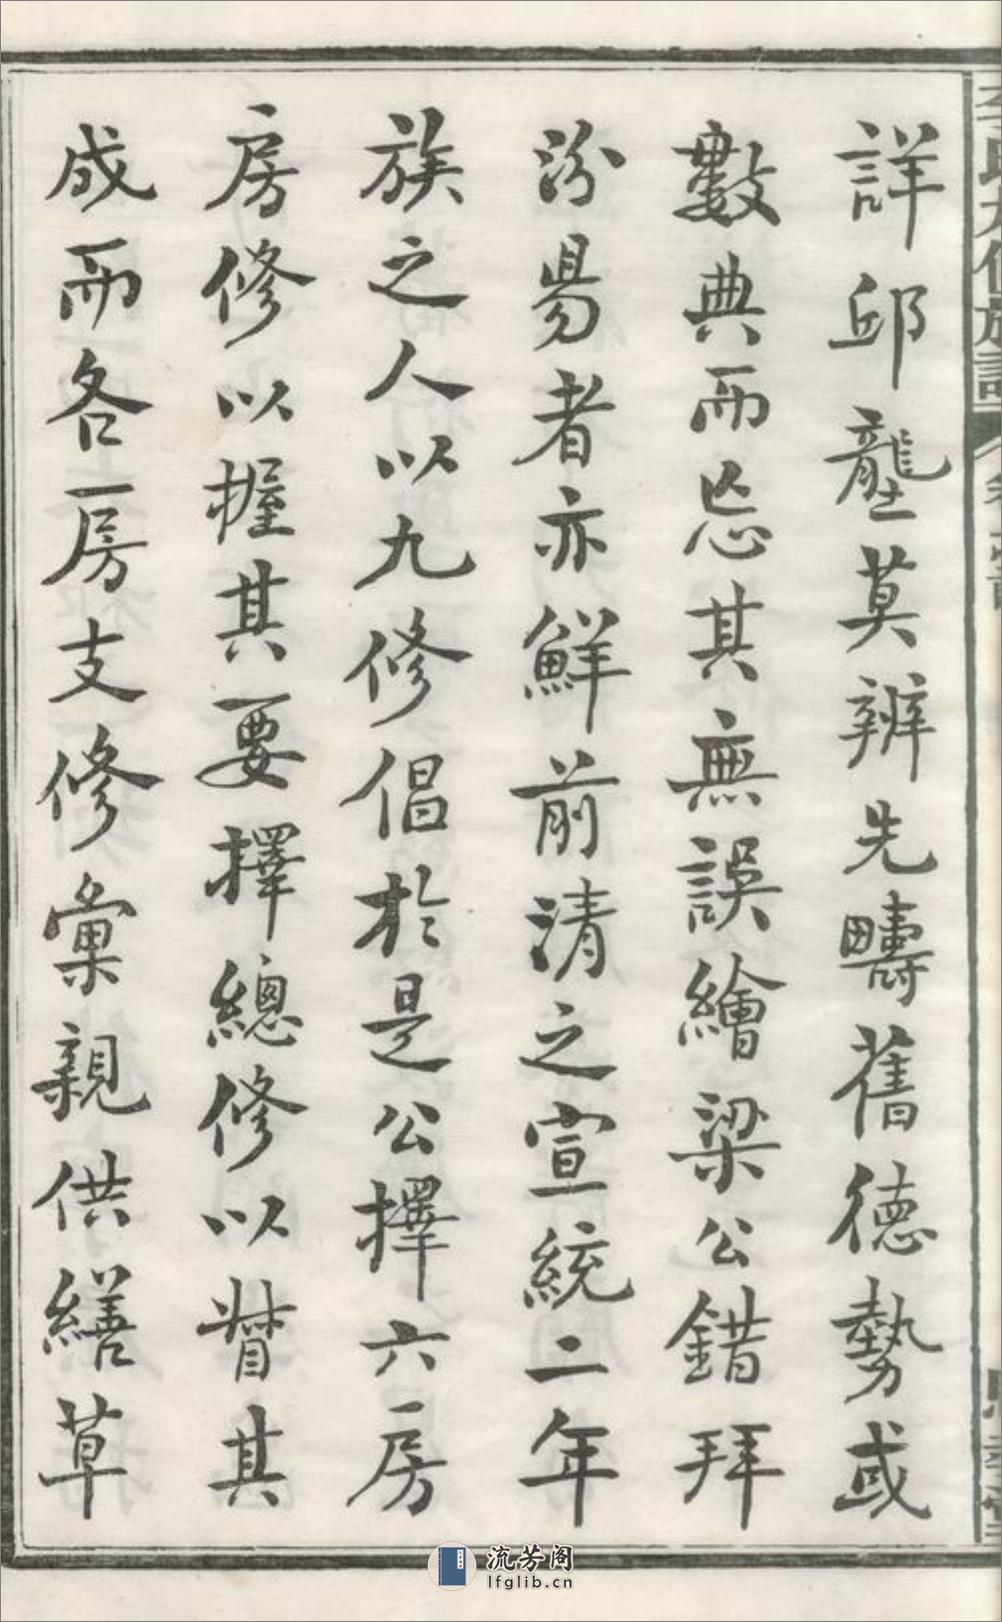 詳邱壟莫辨先疇舊德勢或
數典而忘其無誤繪梁公錯拜
汾昜者亦鮮前清之宣統二年
族之人以九修倡於是公擇六房
房修以握其要擇總修以督其
成而各房支修彙親供繕草
流芳阁
lfglib.cn